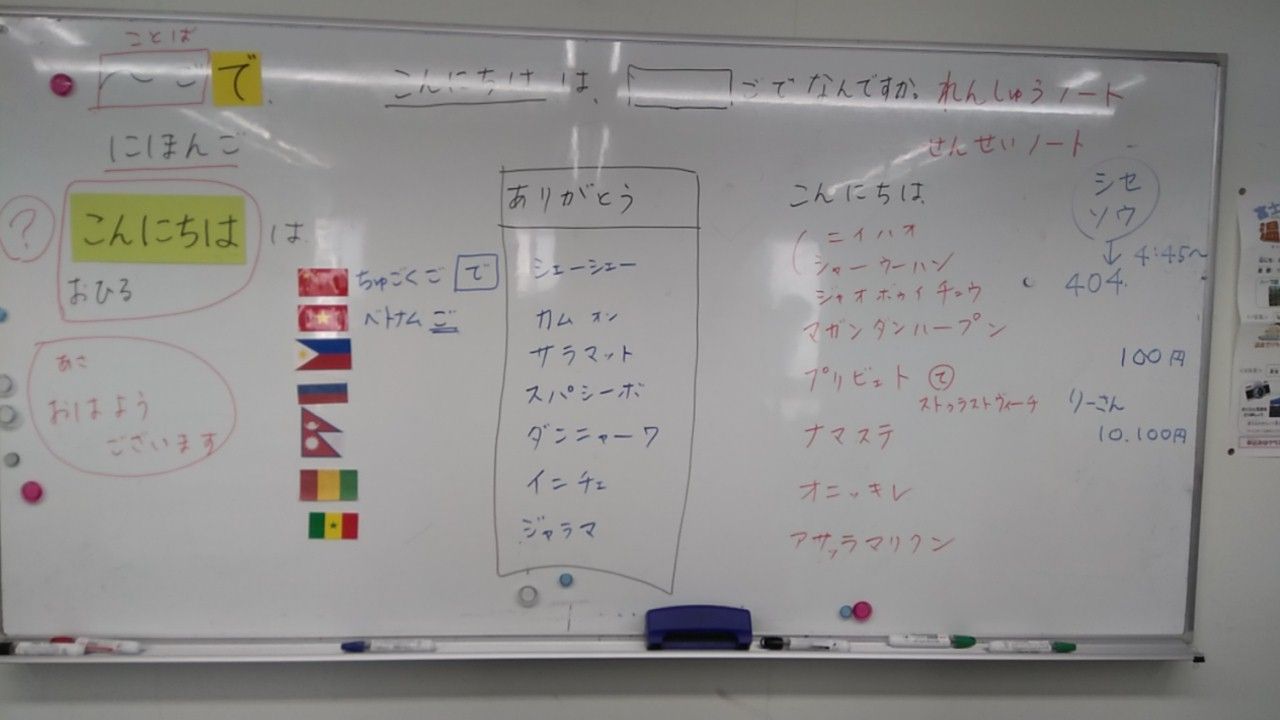 ことば
ごで
こんにちは は、 ごでなんですか。
れんしゅうノート
せんせいノート
にほんご
?
こんにちは は
おひる
あさ
おはよう
ございます
ちゅごくごで
ベトナムご
ありがとう
シェーシェー
カムオン
サラマット
スパシーボ
ダンニャーワ
イニチェ
ジャラマ
こんにちは
ニイハオ
シャーウーハン
ジャオボゥイチュウ
マガンダンハープン
プリビェト て
ストゥラストヴィーチ
ナマステ
オニッキレ
アサッラマリクン
シセ
ソウ
↓ 4:45〜
404
100円
りーさん
10.100円